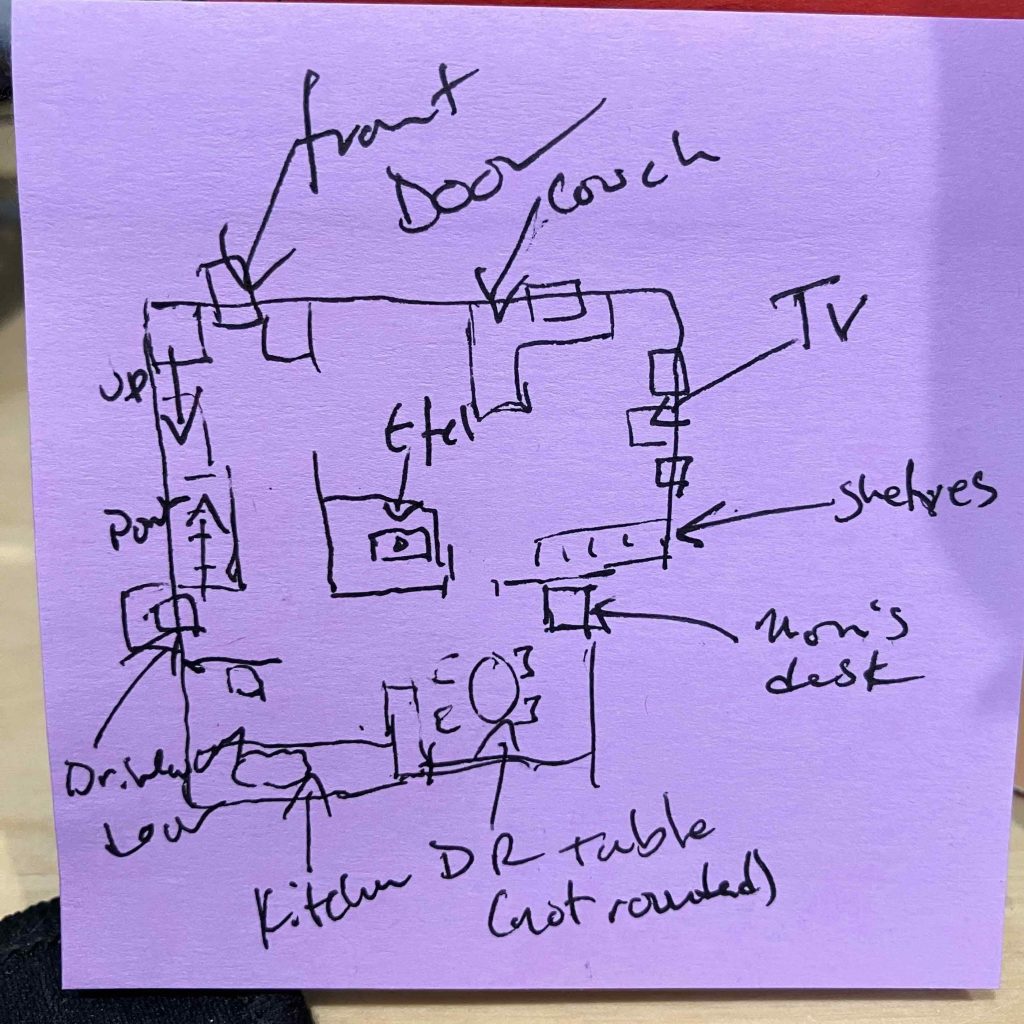 front
Door
couch
TV
up
Etel
shelves
Mom's
desk
Kitchen
DR table
(not rounded)